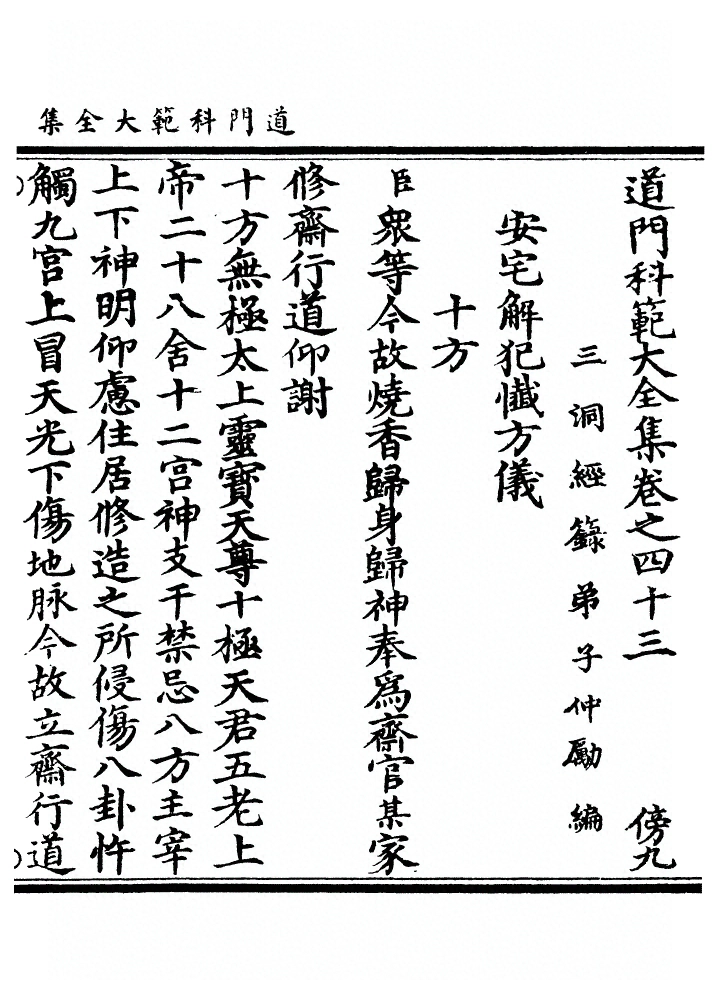 道門科範大全集
道門科範大全集卷之四十三 傍九
三洞經籙弟子仲勵編
安宅解犯懺方儀
十方
臣眾等今故燒香歸身歸神奉為齋官某家
修齋行道仰謝
十方無極太上靈寶天尊十極天君五老上
帝二十八舍十二宮神支干禁忌八方主宰
上下神明仰慮住居修造之所侵傷八卦忤
觸九宮上冒天光下傷地脉今故立齋行道